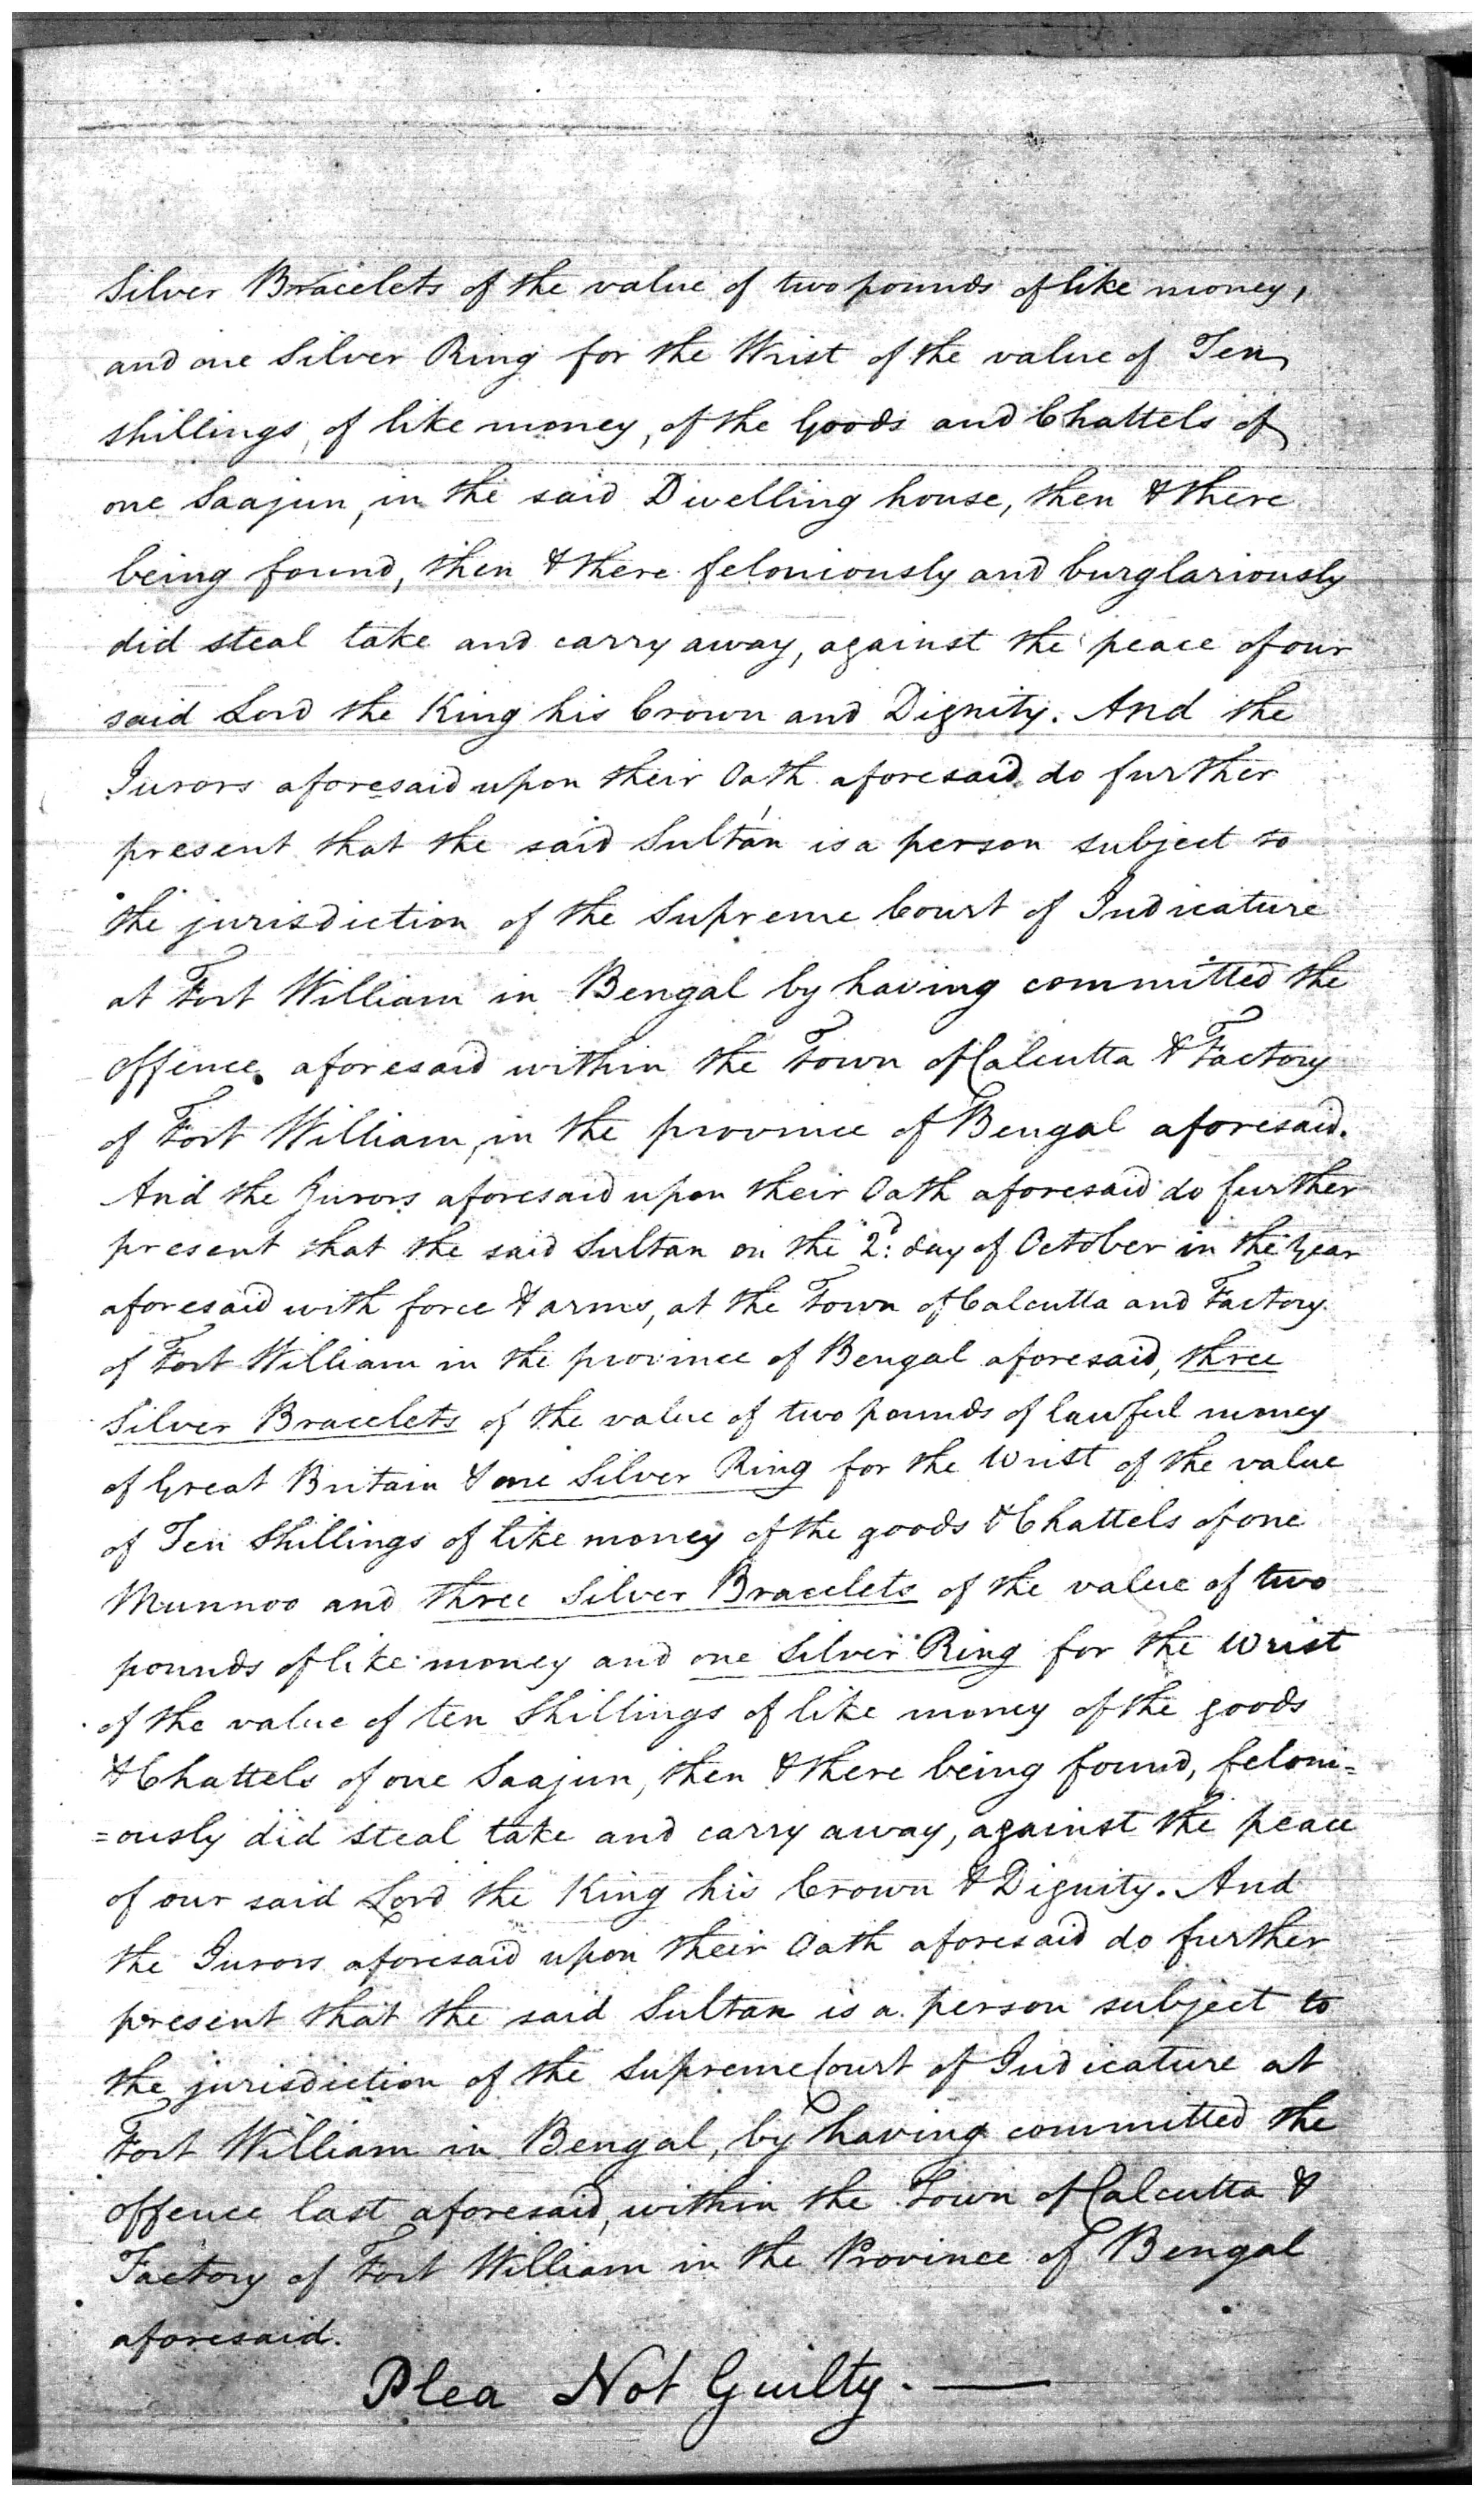 Silver Bracelets of the value of two pounds of like money,
and one Silver Ring for the Wrist of the value of Ten
shillings, of like money, of the Goods and Chattels of
one Saajun, in the said Dwelling house, then & there
being found, then & there feloniously and burglariously
did steal take and carry away, against the peace of our
said Lord the King his Crown and Dignity. And the
Jurors aforesaid upon their Oath aforesaid do further
present that the said Sultán is a person subject to
the jurisdiction of the Supreme Court of Judicature
at Fort William in Bengal by having committed the
offence aforesaid within the Town of Calcutta & Factory
of Fort William, in the province of Bengal aforesaid.
And the Jurors aforesaid upon their Oath aforesaid do further
present that the said Sultan on the 2d: day of October in the Year
aforesaid with force & arms, at the Town of Calcutta and Factory
of Fort William in the province of Bengal aforesaid, three
Silver Bracelets of the value of two pounds of lawful money
of Great Britain & one Silver Ring for the Wrist of the value
of Ten Shillings of like money of the goods & Chattels of one
Munnoo and three Silver Bracelets of the value of two
pounds of like money and one Silver Ring for the Wrist
of the value of ten Shillings of like money of the goods
& Chattels of one Saajun, then & there being found, feloni=
=ously did steal take and carry away, against the peace
of our said Lord the King his Crown & Dignity. And
the Jurors aforesaid upon their Oath aforesaid do further
present that the said Sultan is a person subject to
the jurisdiction of the Supreme Court of Judicature at
Fort William in Bengal, by having committed the
offence last aforesaid, within the Town of Calcutta &
Factory of Fort William in the Province of Bengal
aforesaid.
Plea Not Guilty. —